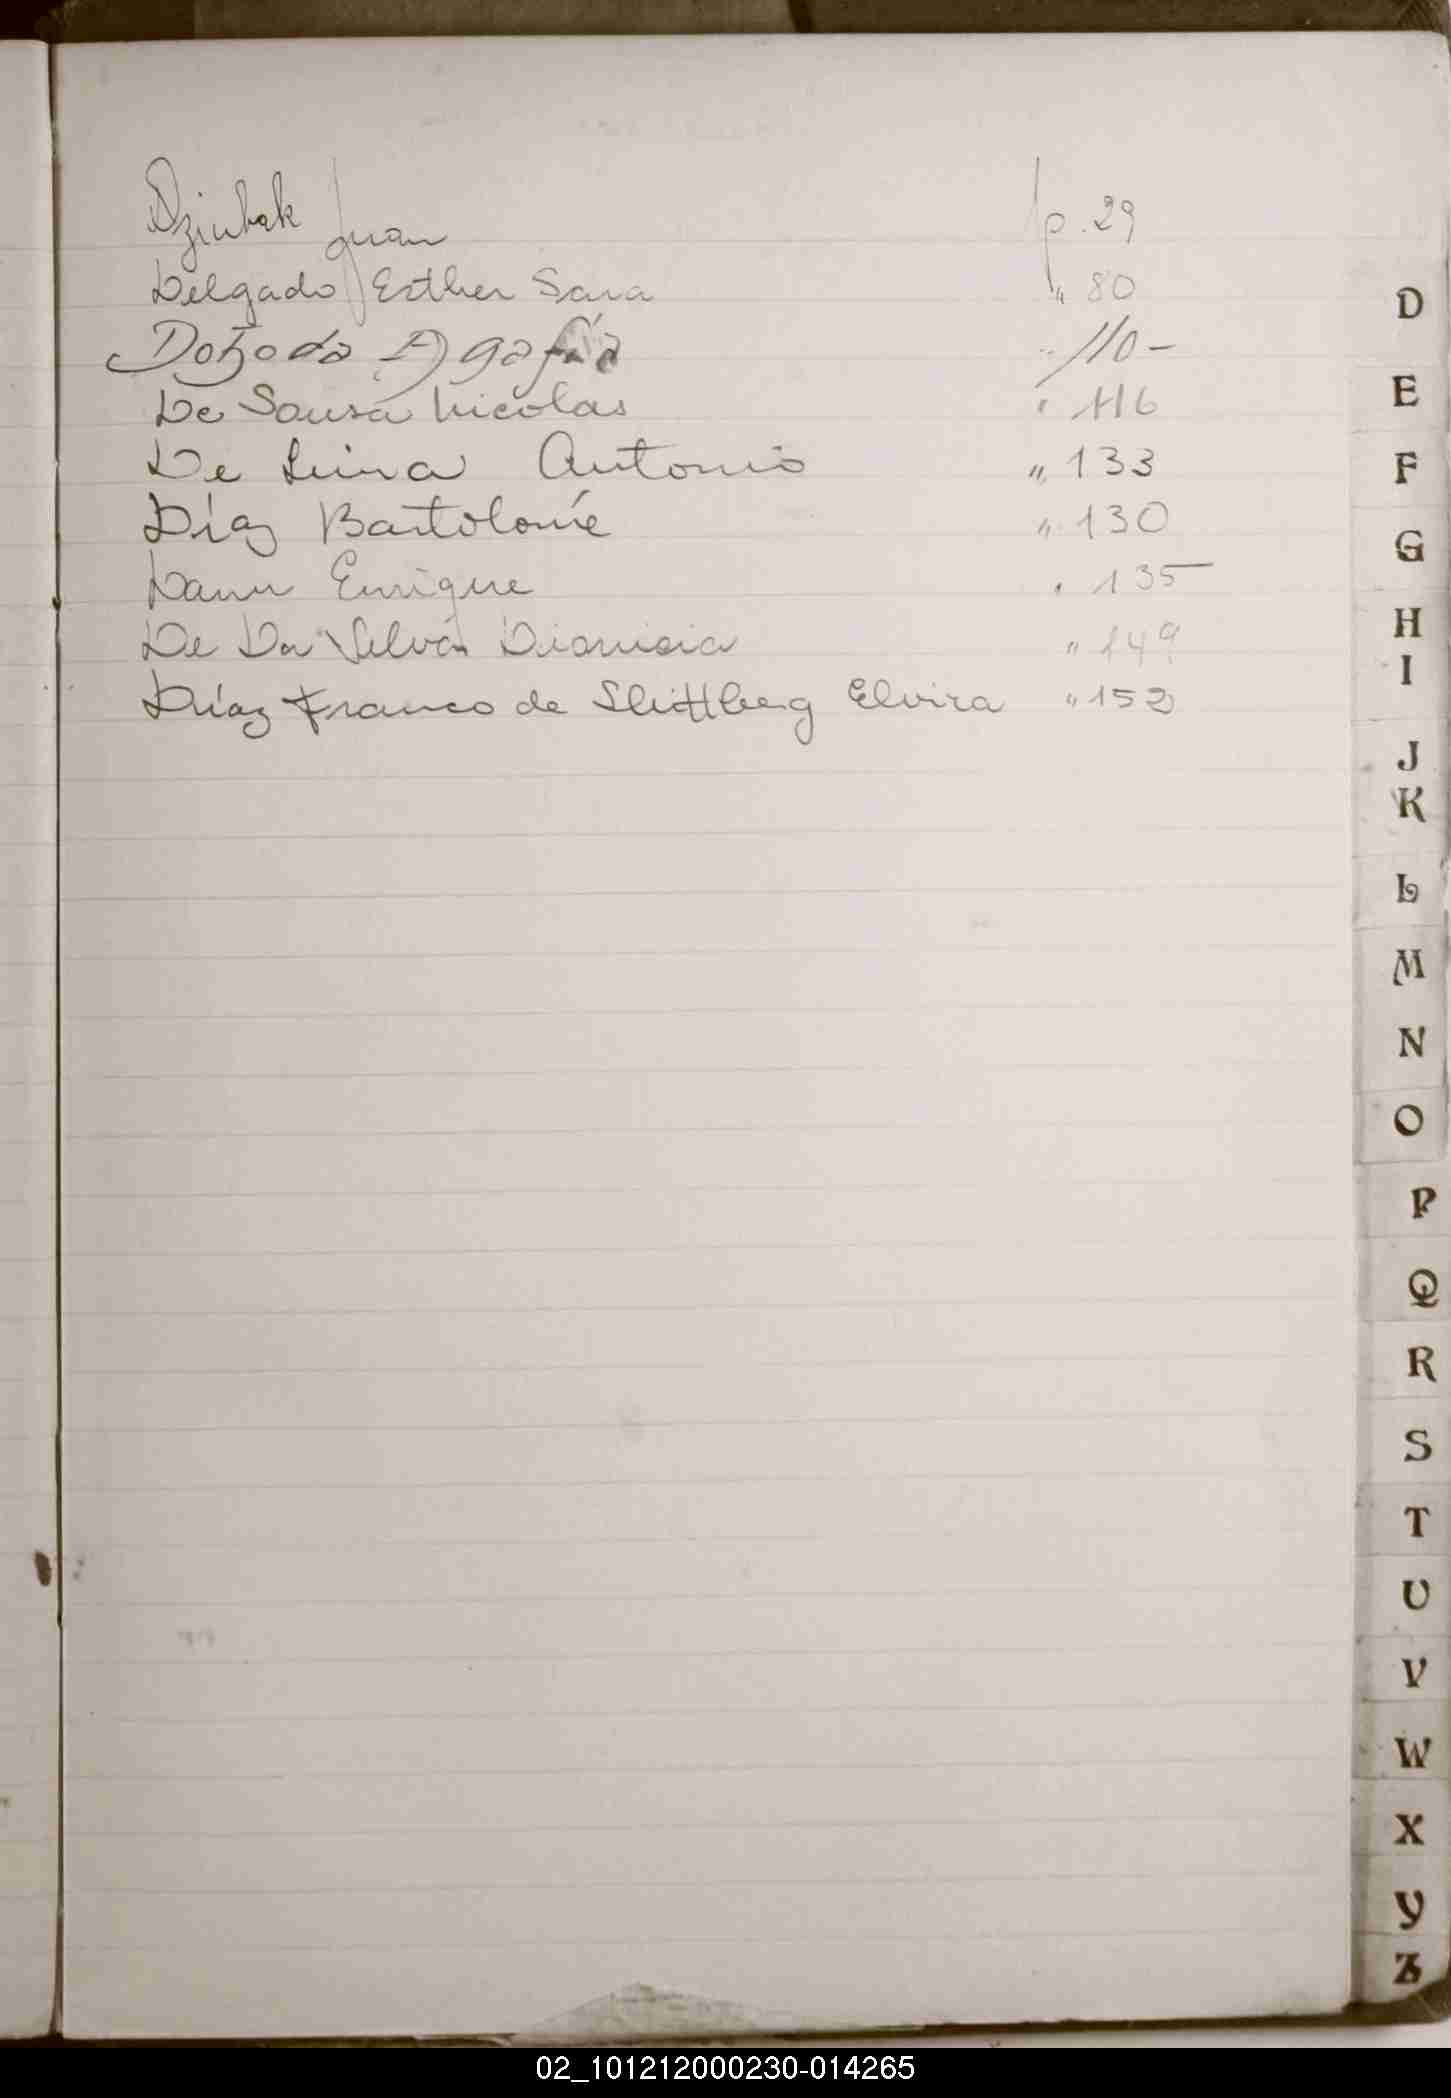 Dziubak Juan p. 29
Delgado Esther Sara " 80
" 110-
De Sousa Nicolas " 116
De Lima Antonio " 133
Díaz Bartolomé " 130
Dann Enrique " 135
De Da Silva Dionisia " 149
Díaz Franco de Elvira " 152
D
E
F
G
H
I
J
K
L
M
N
O
P
Q
R
S
T
U
V
W
X
Y
Z
02_101212000230-014265